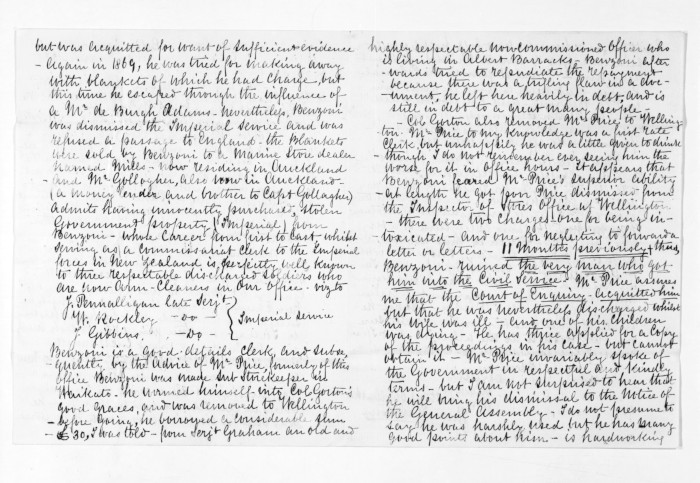 but was acquitted for want of sufficient evidence
- Again in 1869, he was tried for making away
with blankets of which he had charge, but
this time he escaped through the influence of
a Mr de Burgh Adams - nevertheless, Benzoni
was dismissed the Imperial Service and was
refused a passage to England - the blankets
were sold by Benzoni to a Marine Store dealer
named Mills - now residing in Auckland
- and Mr Gollogher, also now in Auckland -
(a money lender and brother to Capt Gollagher)
admits having innocently purchased, stolen
Government property (Imperial) from
Benzoni - whose career from first to last - whilst
serving as a commissariat clerk to the Imperial
forces in New Zealand is perfectly well known
to three respectable discharged soldiers who
are now Arm-Cleaners in our office - viz to
J. Pennalligan late Serjt
W. Rockley - do -
J Gibbins - Do -
Imperial Service
Benzoni is a good details Clerk, and subse,
quently by the advice of Mr Price, formerly of this
office Benzoni was made Sub Storekeeper in
Waikato - he wormed himself into Col Gorton's
good graces, and was removed to Wellington
- before going, he borrowed a considerable sum
- £30, I was told - from Serjt Graham an old and
highly respectable noncommissioned officer who
is living in Albert Barracks - Benzoni after
- wards tried to repudiate the repayment
because there was a trifling flaw in a docu
- ment, he left here heavily in debt, and is
still in debt to a great many people -
- Col Gorton also removed Mr Price, to Welling
ton - Mr Price to my knowledge was a first rate
Clerk, but unhappily he was a little given to drink
- though I do not remember ever seeing him the
worse for it in office hours - it appears that
Benzoni feared Mr Price's superior ability
- at length he got poor Price dismissed from
the Inspector of Stores Office at Wellington
- there were two charges one for being in-
toxicated - and one for neglecting to forward a
letter or letters - 11 months previously, thus
Benzoni - ruined the very man who got
him into the Civil Service - Mr Price assures
me that the Court of Enquiry - acquitted him
but that he was nevertheless discharged whilst
his wife was ill - and one of his children
was dying - He has thrice applied for a copy
of the proceedings in his case - but cannot
obtain it - Mr Price invariably spoke of
the Government in respectful and kindly
terms - but I am not surprised to hear that
he will bring his dismissal to the notice of
the General Assembly - I do not presume to
say he was harshly used but he has many
good points about him - is hardworking